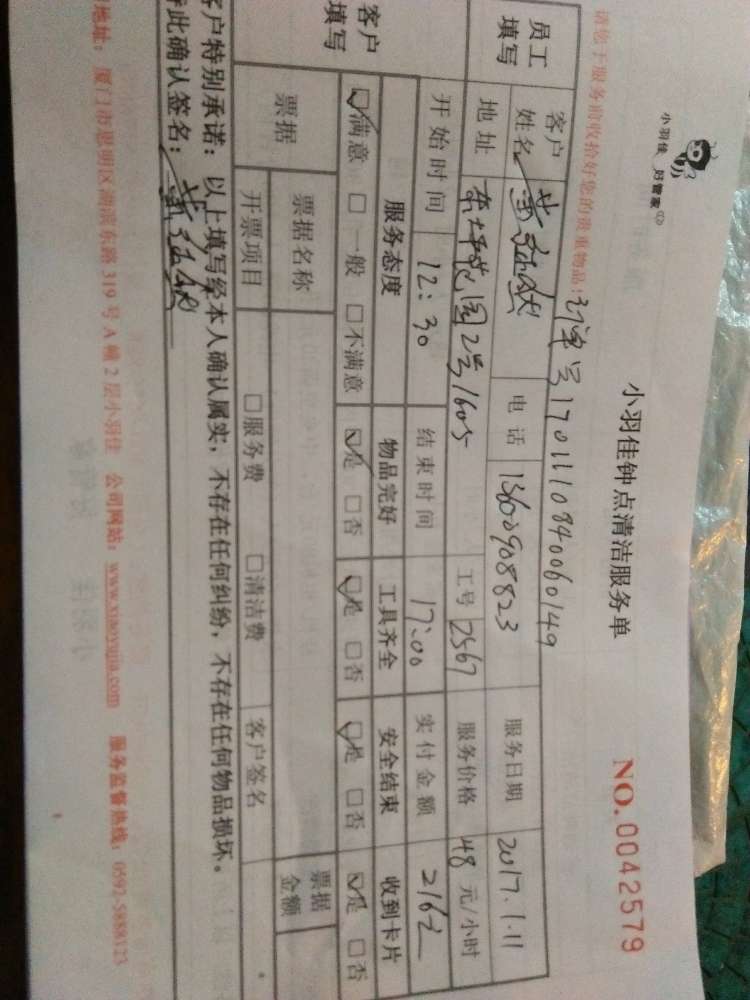 小羽佳 好管家
小羽佳钟点清洁服务单
NO.0042579
请您于服务前收拾好您的贵重物品!
订单号1701110840060149
员工填写
客户姓名 电话 13600908823 服务日期 2017.1.11
地址 2号1605 工号 2567 服务价格 48 元/小时
开始时间 12:30 结束时间 17:00 实付金额 216元
客户填写
服务态度 物品完好 工具齐全 安全结束 收到卡片
☑满意 □一般 □不满意 ☑是 □否 ☑是 □否 ☑是 □否 ☑是 □否
票据 票据名称 票据金额
开票项目 □服务费 □清洁费 客户签名
客户特别承诺:以上填写经本人确认属实,不存在任何纠纷,不存在任何物品损坏。
此确认签名:
地址:厦门市思明区湖滨东路319号A幢2层小羽佳 公司网站:www.xiaoyujia.com 服务监督热线:0592-5888123